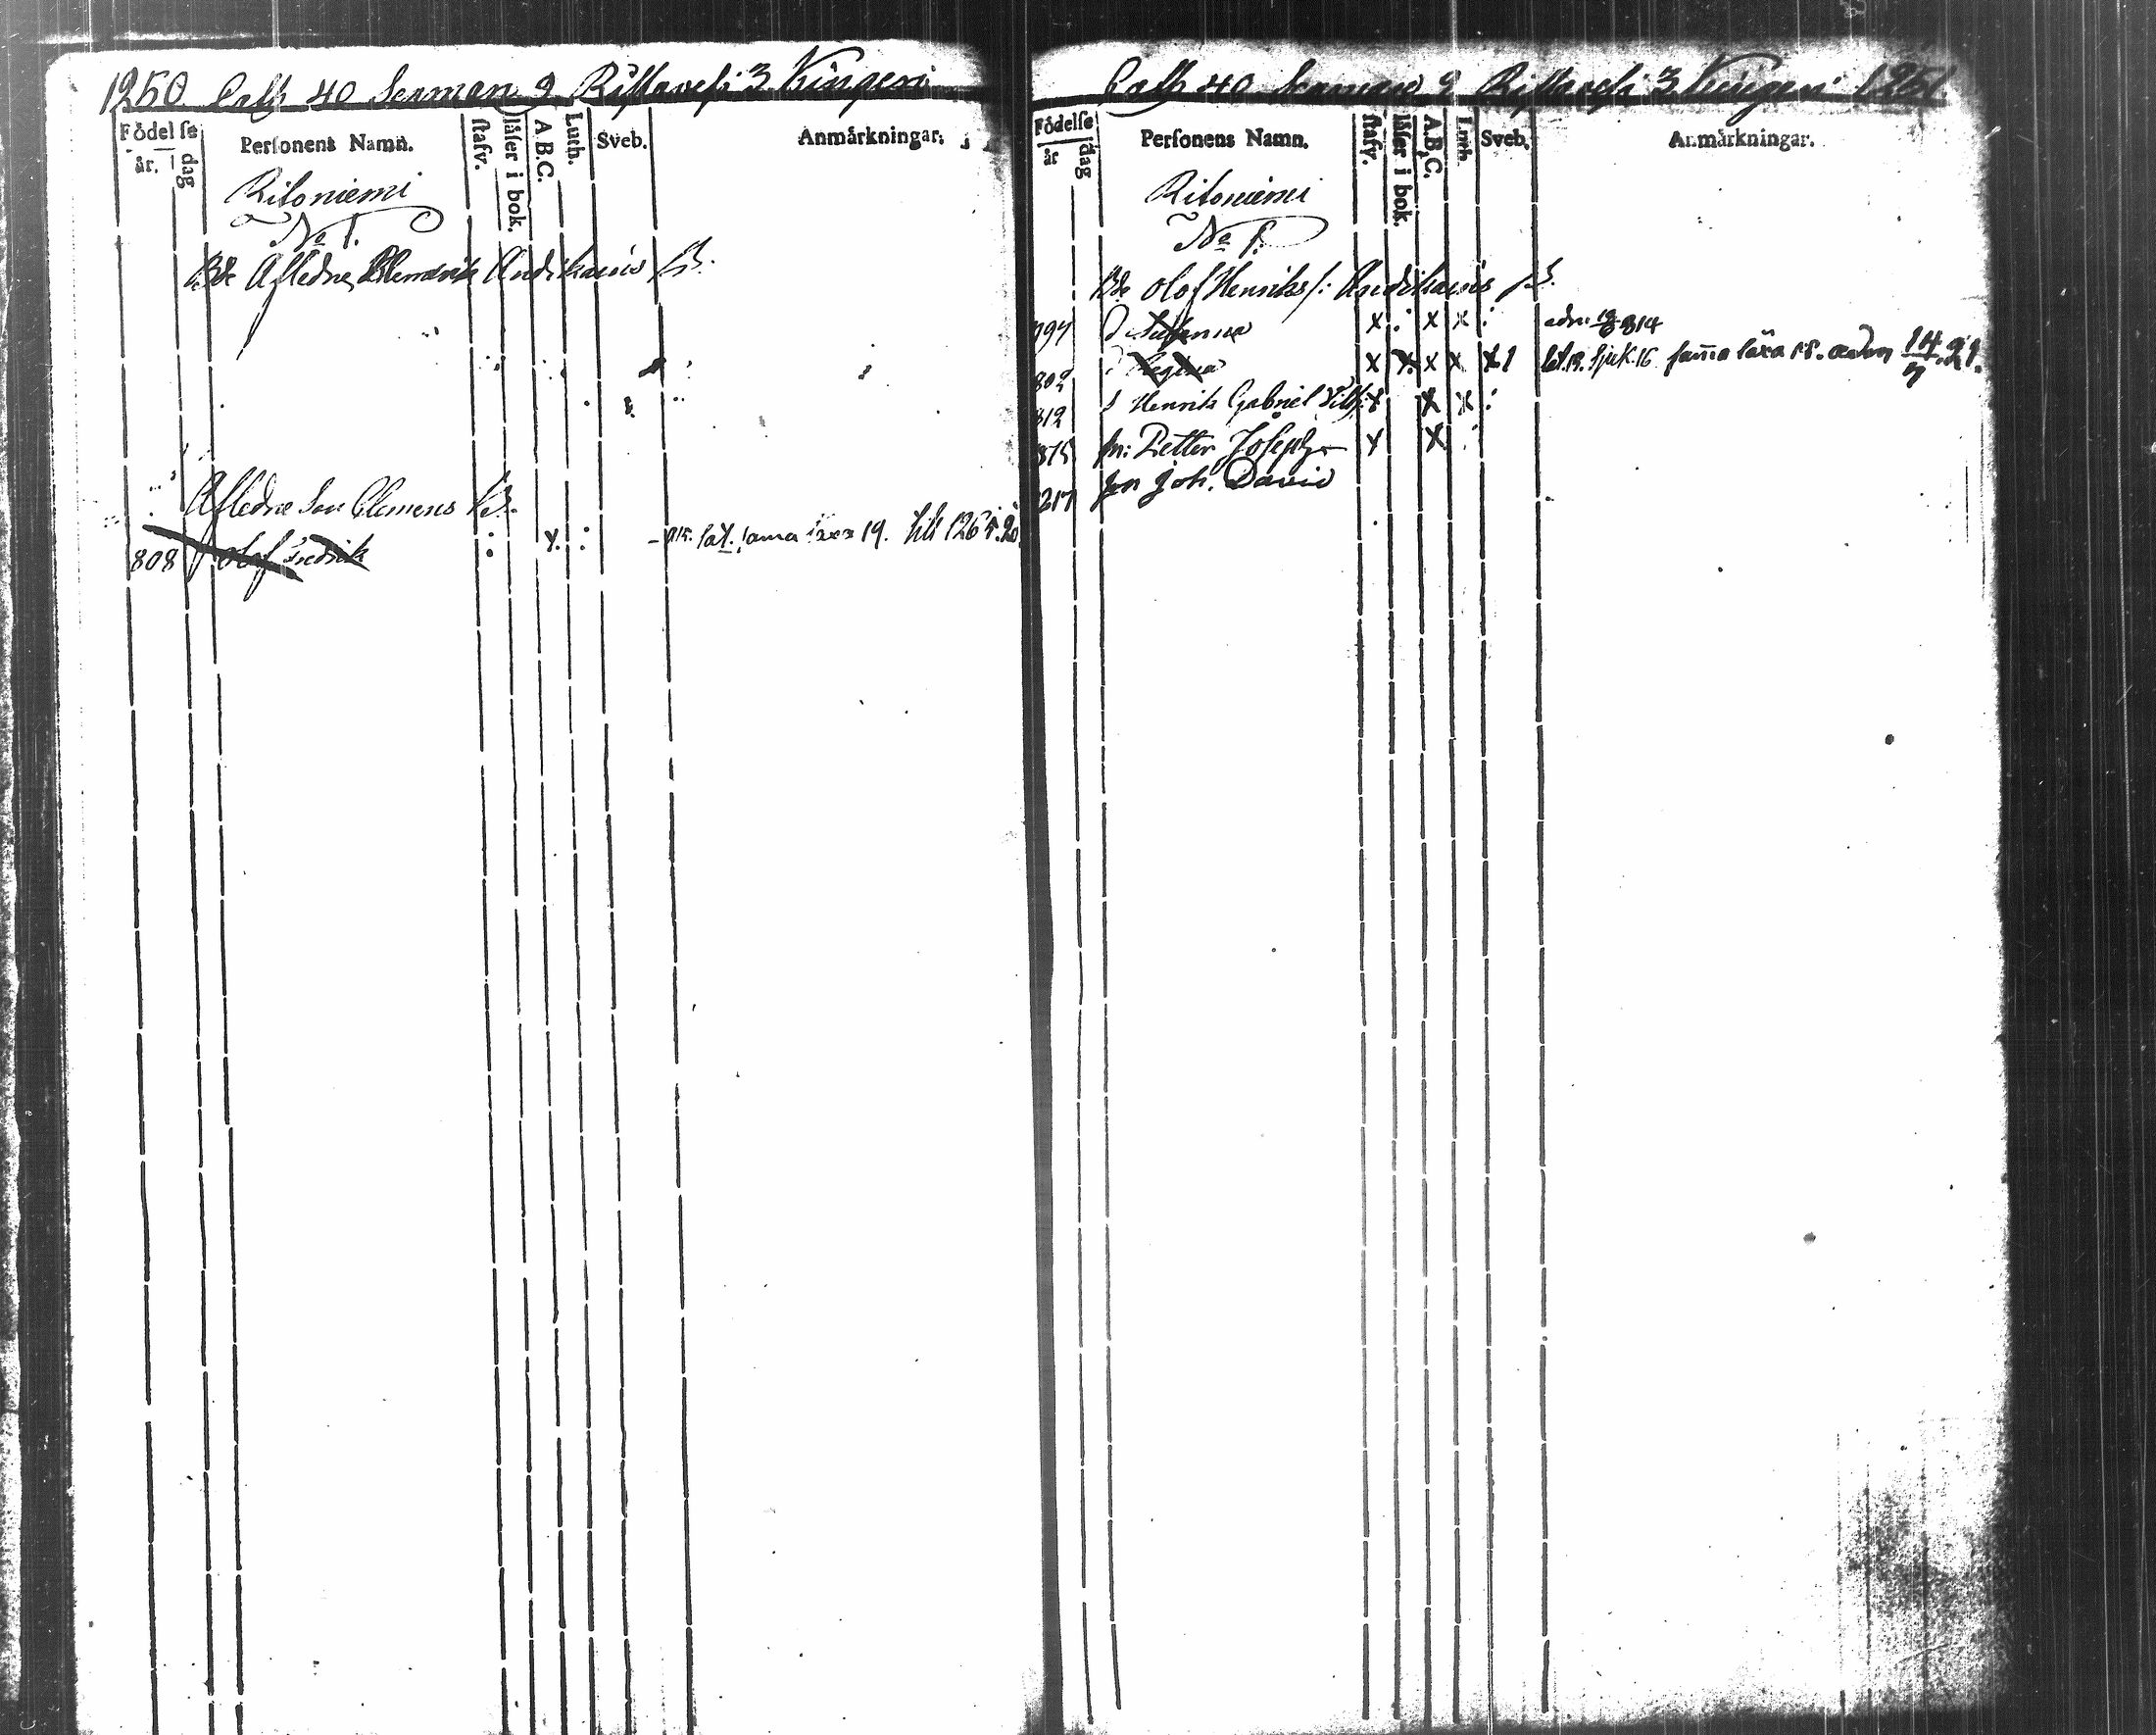 1250 Cath 40 Serman 9 Ristavesi 3 Kingeri
Födelse
år. dag
Personens Namn.
stafv.
läser i bok.
A.B.C.
Luth.
Sveb.
Anmärkningar.
Ritoniemi
No 1.
Bde Afledne Henrik Andikainis
Afledne Son Clemens
808 Olof Fredrik
lat. sama läxa 19. till 1265.20
Cath 40 Serman 9 Ristavesi 3 Kingeri 1251
Födelse
år dag
Personens Namn.
stafv.
läser i bok.
A.B.C.
Luth.
Sveb.
Anmärkningar.
Ritoniemi
No 1.
Bde Olof Henriks: Andikainis
794 D Susanna x x x 814
802 D Regina x x x x x1 sjuk 16 sama läxa 18. 14/7 21.
812 S Henrik Gabriel x x x
815 Petter Joseph x x
217 Son Joh. David